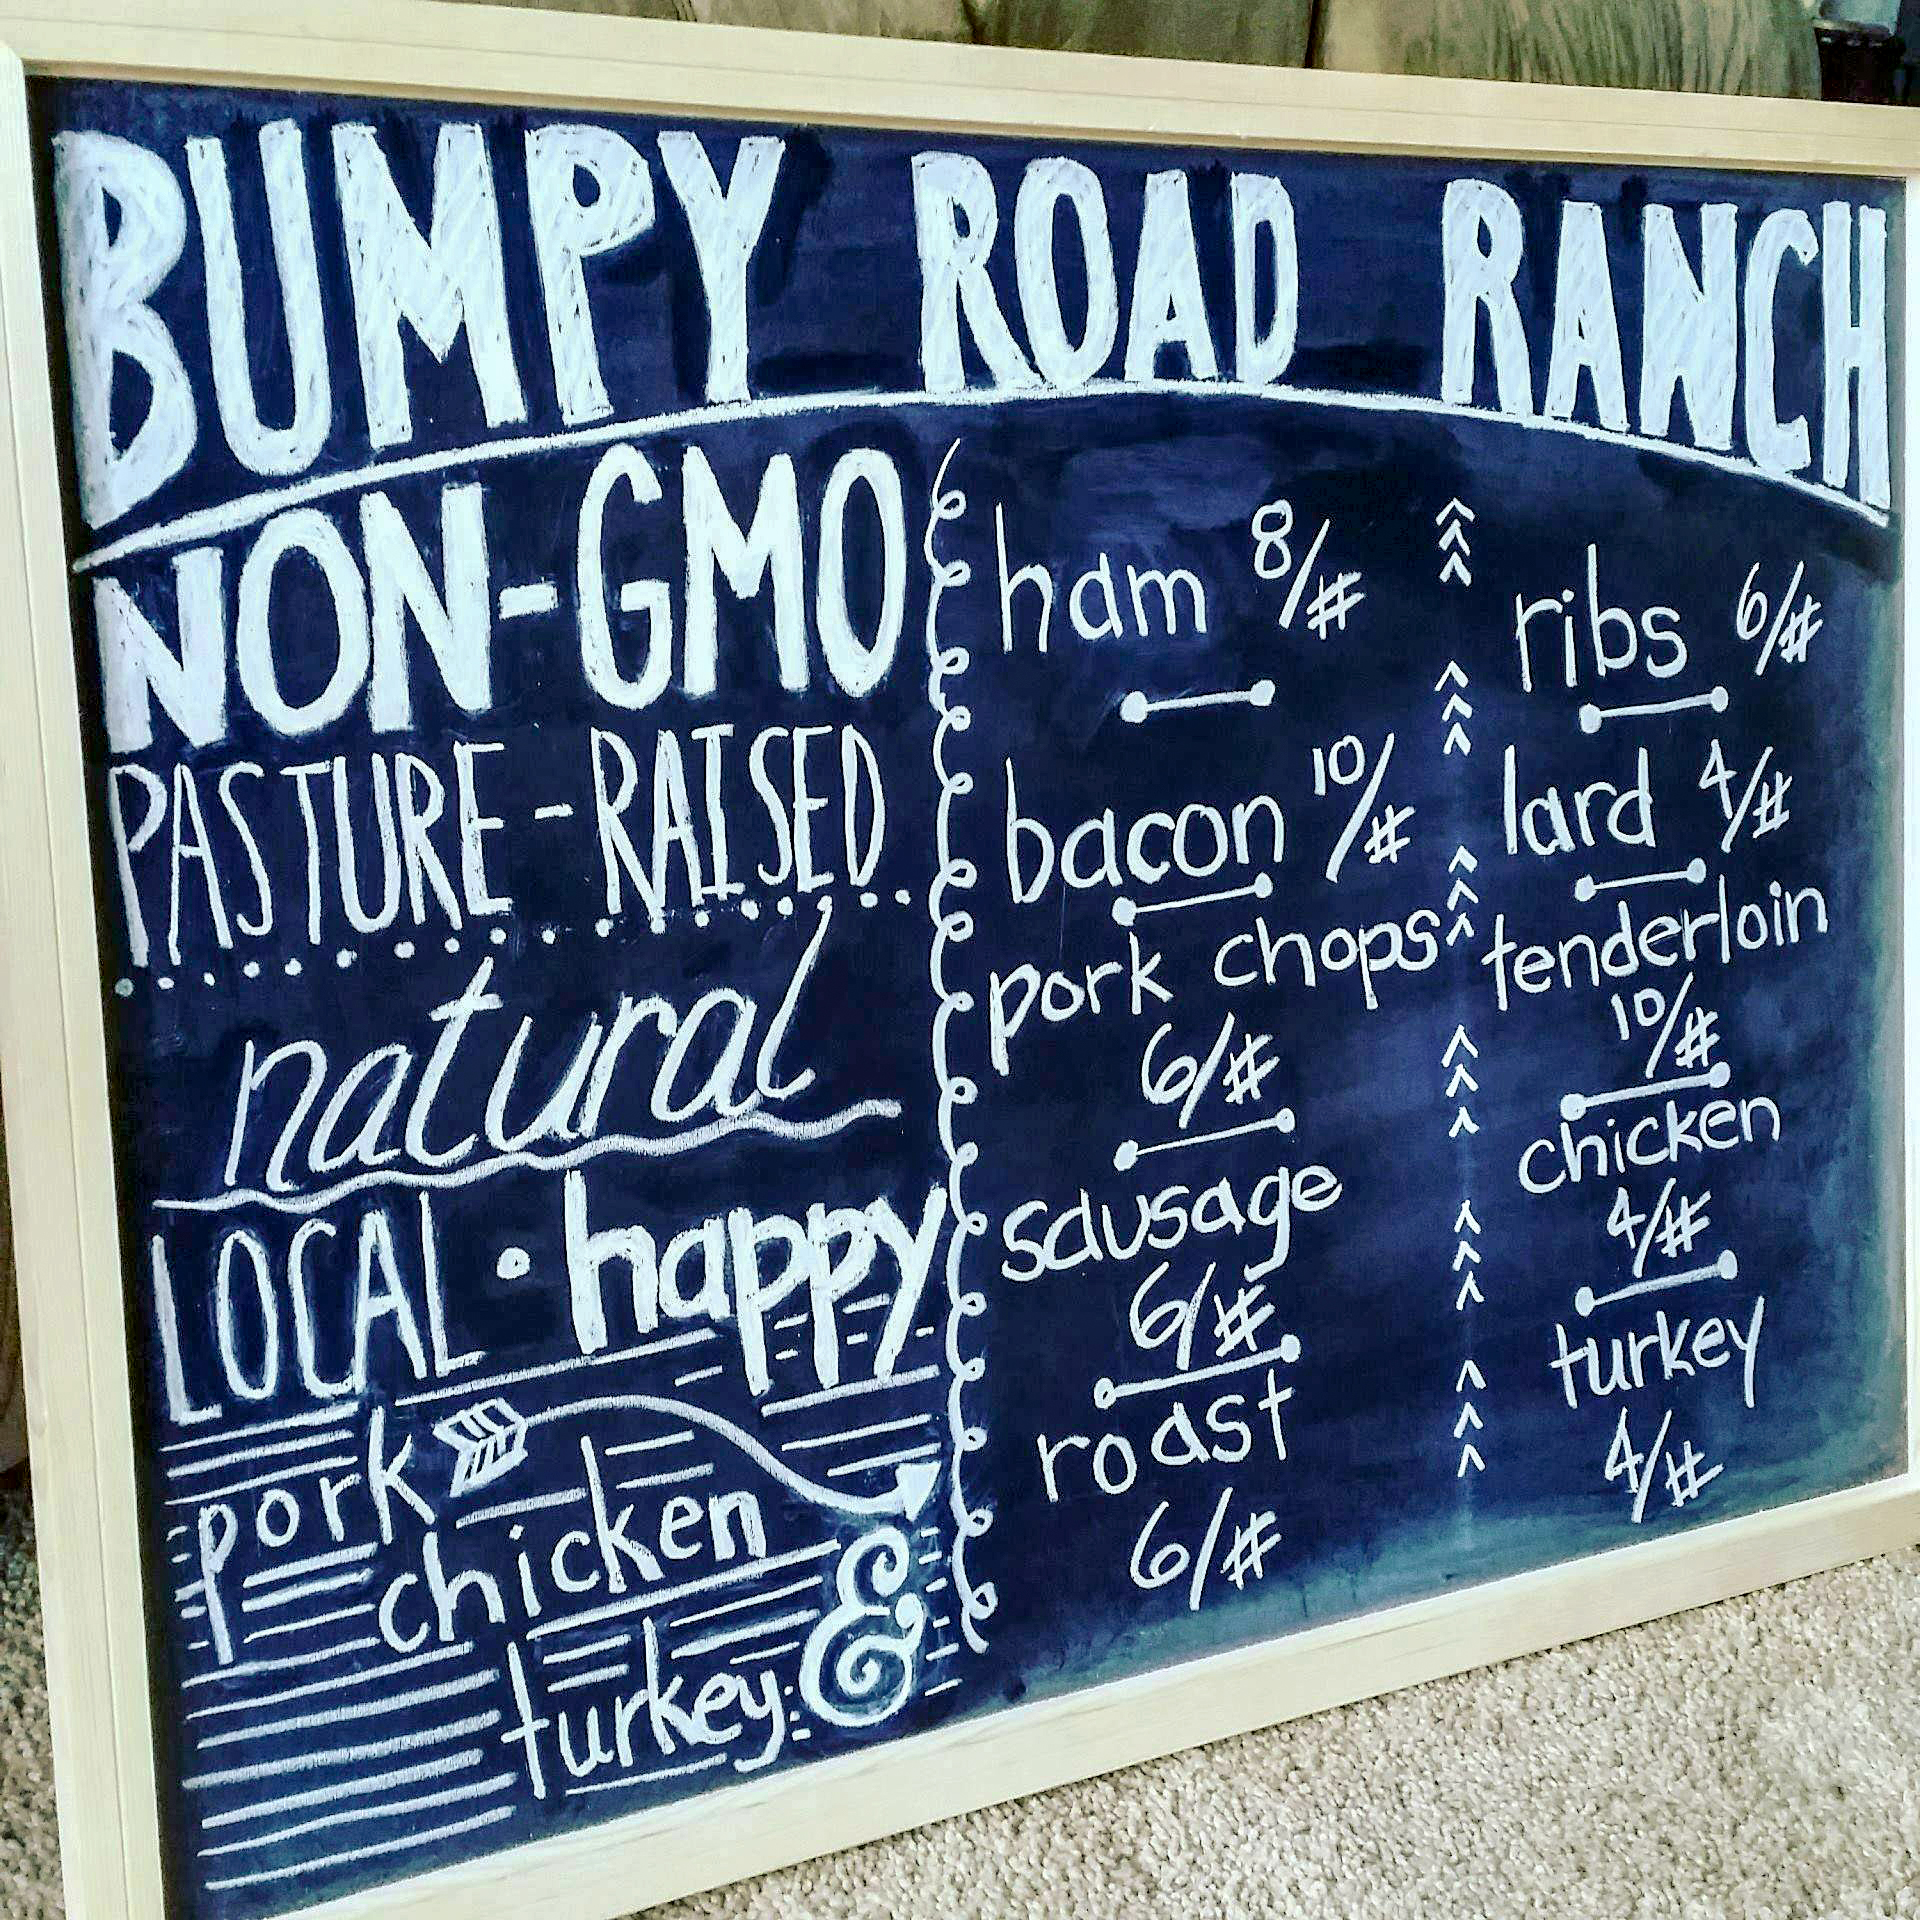 BUMPY ROAD RANCH
NON-GMO
PASTURE-RAISED
natural
LOCAL • happy
pork
chicken
turkey &
ham 8/#
bacon 10/#
pork chops
6/#
sausage
6/#
roast
6/#
ribs 6/#
lard 4/#
tenderloin
10/#
chicken
4/#
turkey
4/#